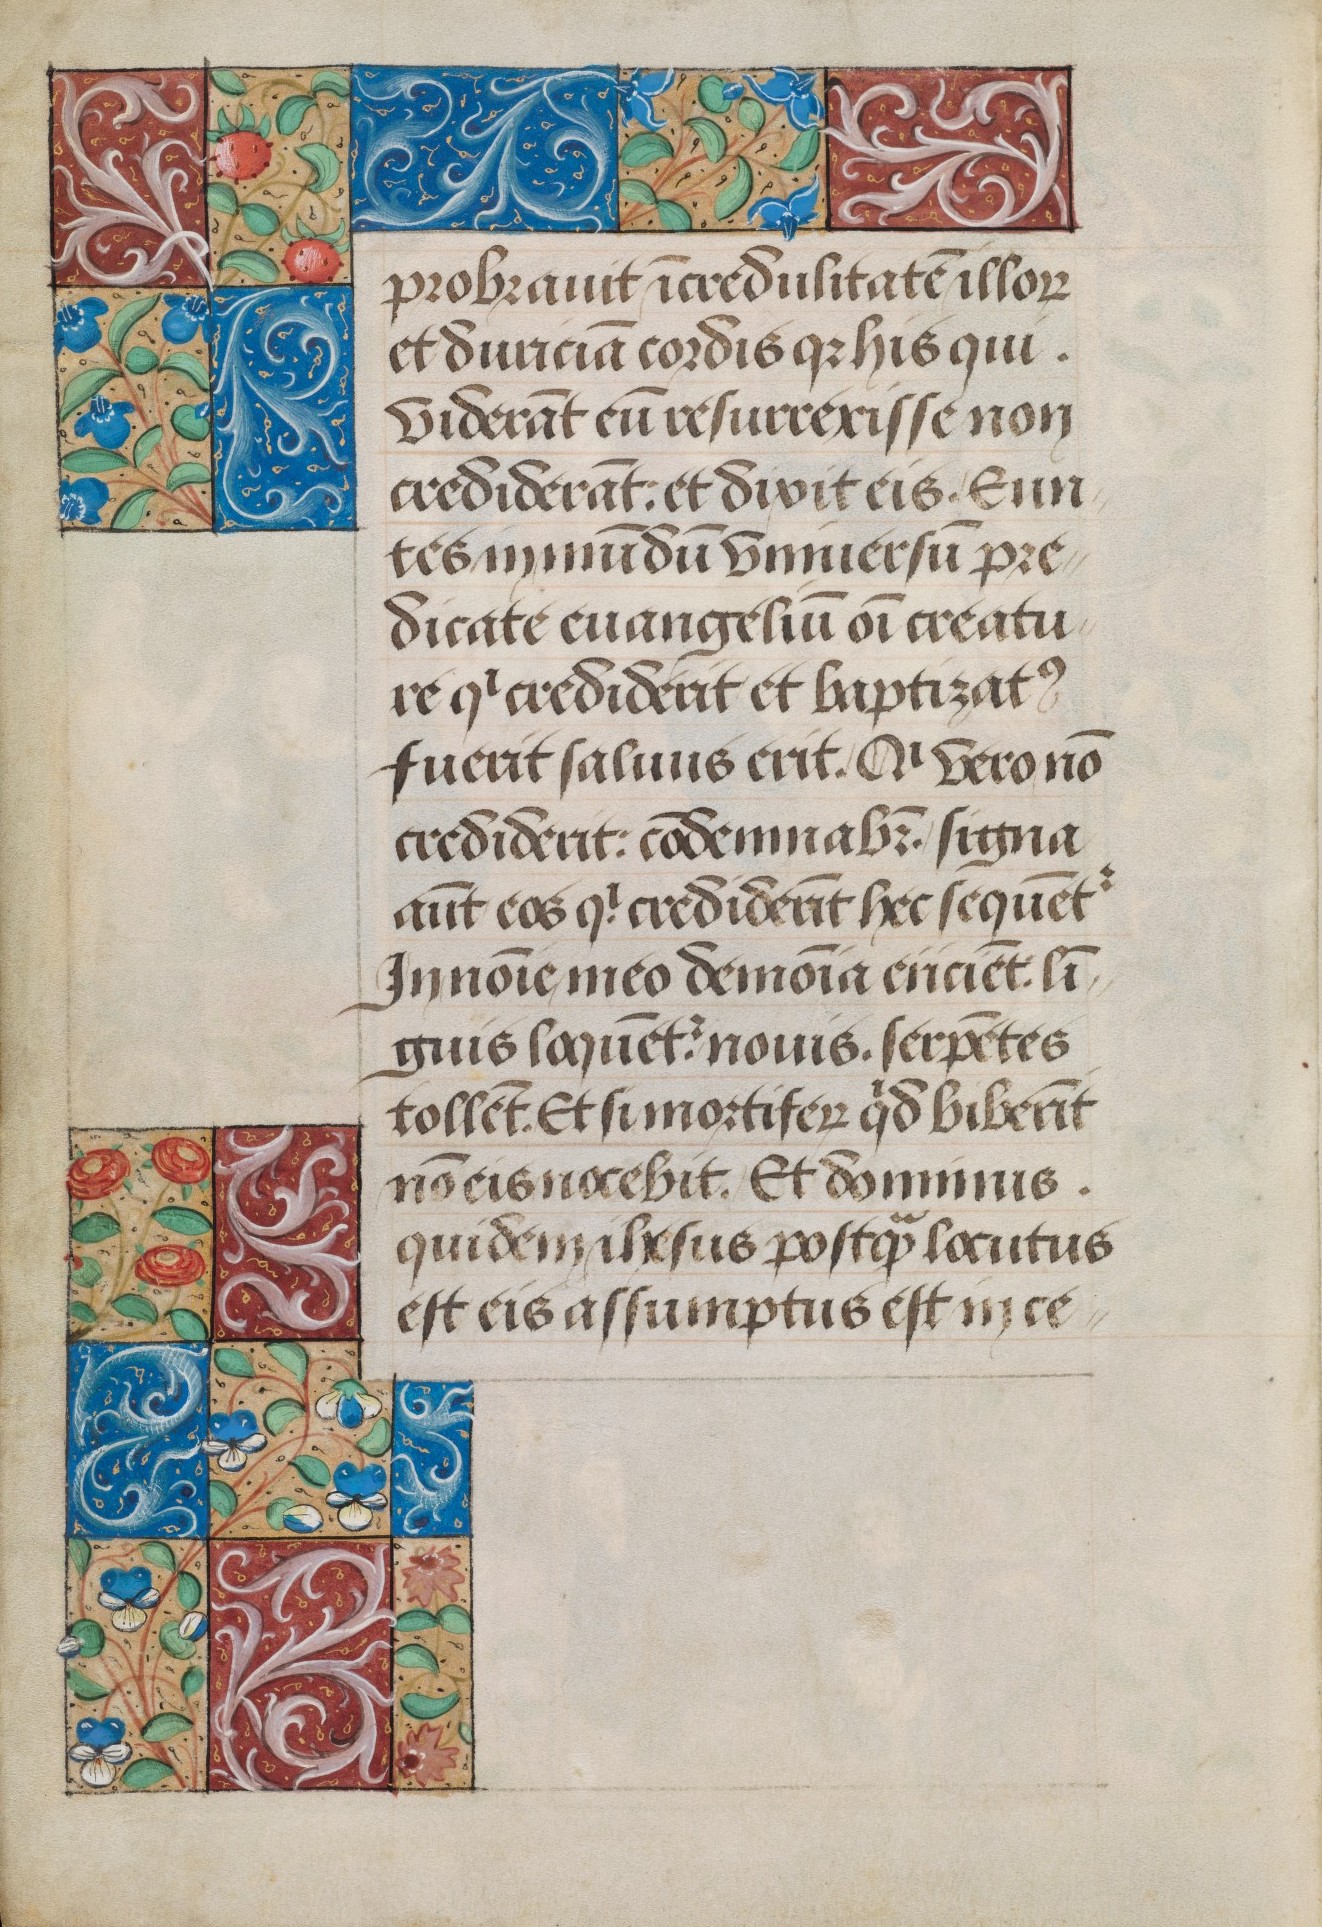 probrauit īcredulitatē illoꝝ
et duriciā cordis qꝛ his qui .
viderāt eū resurrexisse non
crediderāt: et dixit eis. Eun⸗
tes in mūdū vniuersū pre⸗
dicate euangeliū oī creatu⸗
re qⁱ crediderit et baptizatꝰ
fuerit saluus erit. Qⁱ vero nō
crediderit: cōdemnabr̄. signa
aūt eos qⁱ crediderīt hec sequētᷣ
In noīe meo demoīa eiiciēt. lī⸗
guis loquētᷣ: nouis. serpētes
tollēt. Et si mortiferꝝ qⁱd biberīt
nō eis nocebit. Et dominus .
quidem ihesus postqᷓ locutus
est eis assumptus est in ce⸗